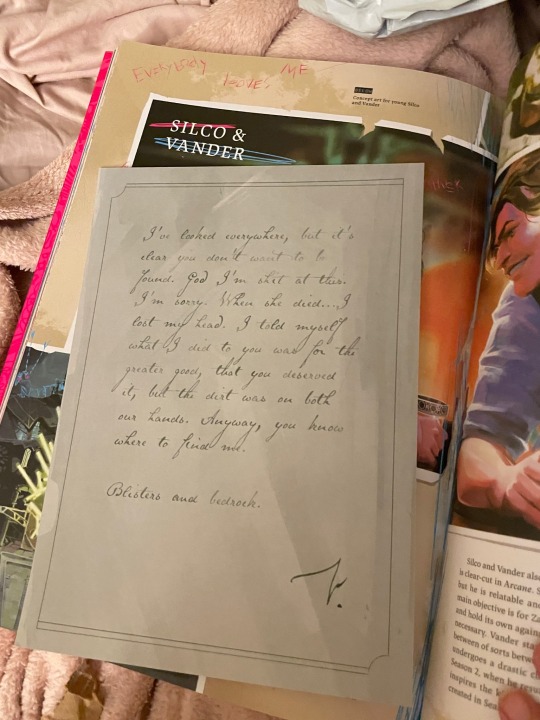 Everybody leaves ME
Concept art for young Silco
and Vander
SILCO &
VANDER
I've looked everywhere, but it's
clear you don't want to be
found. God I'm shit at this.
I'm sorry. When she died...I
lost my head. I told myself
what I did to you was for the
greater good, that you deserved
it, but the dirt was on both
our hands. Anyway, you know
where to find me.
Blisters and bedrock.
V.
Silco and Vander also
is clear-cut in Arcane. S
but he is relatable and
main objective is for Za
and hold its own again
necessary. Vander stan
between of sorts betw
undergoes a drastic c
Season 2, when he
inspires the
created in Sea